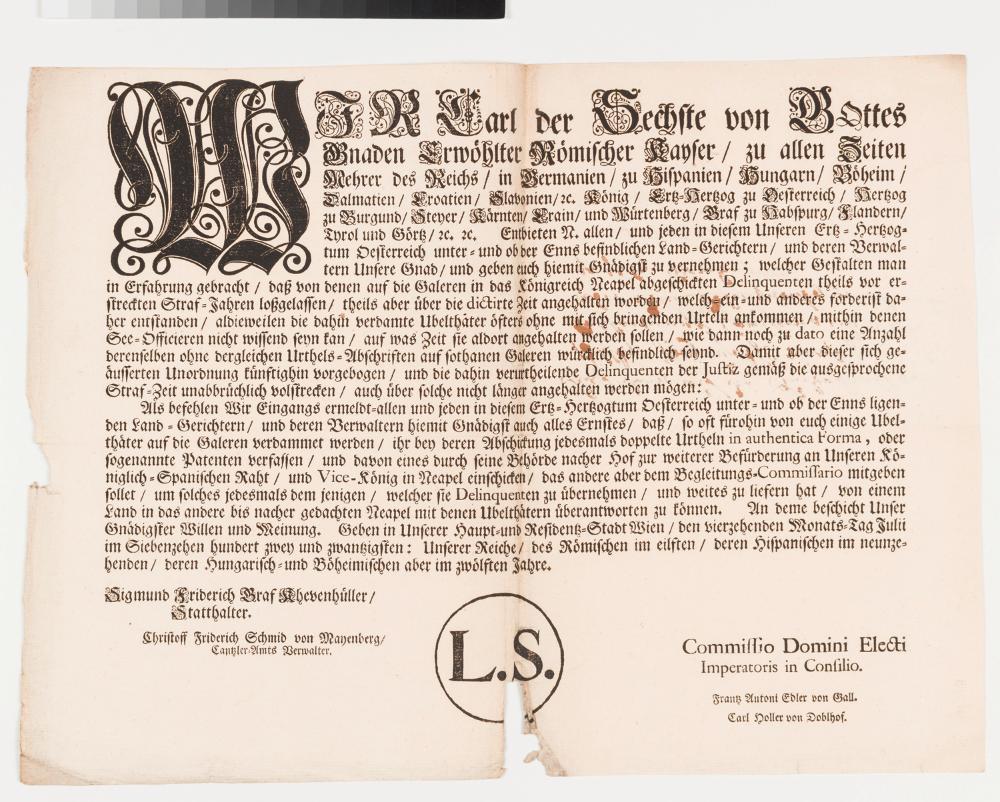 WIR Carl der Sechste von GOttes
Gnaden Erwöhlter Römischer Kayser / zu allen Zeiten
Mehrer des Reichs / in Germanien / zu Hispanien / Hungarn / Böheim /
Dalmatien / Croatien / Slavonien / ꝛc. König / Ertz-Hertzog zu Oesterreich / Hertzog
zu Burgund / Steyer / Kärnten / Crain / und Würtenberg / Graf zu Habspurg / Flandern /
Tyrol und Görtz / ꝛc. ꝛc. Entbieten N. allen / und jeden in diesem Unseren Ertz-Hertzog-
tum Oesterreich unter- und ob der Enns befindlichen Land-Gerichtern / und deren Verwal-
tern Unsere Gnad / und geben euch hiemit Gnädigst zu vernehmen ; welcher Gestalten man
in Erfahrung gebracht / daß von denen auf die Galeren in das Königreich Neapel abgeschickten Delinquenten theils vor er-
streckten Straf-Jahren loßgelassen / theils aber über die dictirte Zeit angehalten worden / welch-ein- und anderes forderist da-
her entstanden / aldieweilen die dahin verdamte Ubelthäter öfters ohne mit sich bringenden Urteln ankommen / mithin denen
See-Officieren nicht wissend seyn kan / auf was Zeit sie aldort angehalten werden sollen / wie dann noch zu dato eine Anzahl
derenselben ohne dergleichen Urthels-Abschriften auf sothanen Galeren würcklich befindlich seynd. Damit aber dieser sich ge-
äusserten Unordnung künftighin vorgebogen / und die dahin verurtheilende Delinquenten der Justiz gemäß die ausgesprochene
Straf-Zeit unabbrüchlich volstrecken / auch über solche nicht länger angehalten werden mögen:
Als befehlen Wir Eingangs ermeldt-allen und jeden in diesem Ertz-Hertzogtum Oesterreich unter- und ob der Enns ligen-
den Land-Gerichtern / und deren Verwaltern hiemit Gnädigst auch alles Ernstes / daß / so oft fürohin von euch einige Ubel-
thäter auf die Galeren verdammet werden / ihr bey deren Abschickung jedesmals doppelte Urtheln in authentica Forma, oder
sogenannte Patenten verfassen / und davon eines durch seine Behörde nacher Hof zur weiterer Befürderung an Unseren Kö-
niglich-Spanischen Raht / und Vice-König in Neapel einschicken / das andere aber dem Begleitungs-Commissario mitgeben
sollet / um solches jedesmals dem jenigen / welcher sie Delinquenten zu übernehmen / und weites zu liefern hat / von einem
Land in das andere bis nacher gedachten Neapel mit denen Ubelthätern überantworten zu können. An deme beschicht Unser
Gnädigster Willen und Meinung. Geben in Unserer Haupt-und Residentz-Stadt Wien / den vierzehenden Monats-Tag Julii
im Siebenzehen hundert zwey und zwantzigsten: Unserer Reiche / des Römischen im eilften / deren Hispanischen im neunze-
henden / deren Hungarisch-und Böheimischen aber im zwölften Jahre.
Sigmund Friderich Graf Khevenhüller /
Statthalter.
Christoff Friderich Schmid von Mayenberg /
Cantzler-Amts Verwalter.
L.S.
Commissio Domini Electi
Imperatoris in Consilio.
Frantz Antoni Edler von Gall.
Carl Holler von Doblhof.